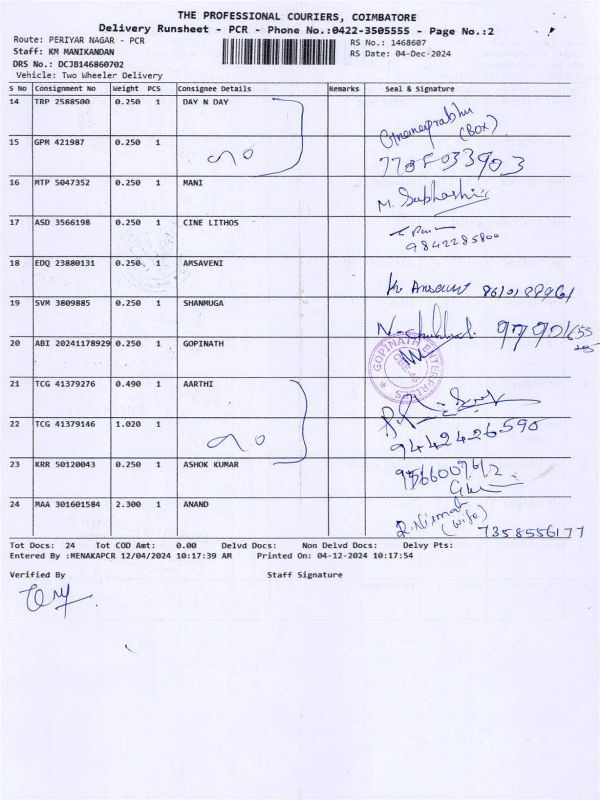 THE PROFESSIONAL COURIERS, COIMBATORE
Delivery Runsheet - PCR - Phone No.:0422-3505555 - Page No.:2
Route: PERIYAR NAGAR - PCR
RS No.: 1468607
Staff: KM MANIKANDAN
RS Date: 04-Dec-2024
DRS No.: DCJB146860702
Vehicle: Two Wheeler Delivery
S No Consignment No Weight PCS Consignee Details Remarks Seal & Signature
14 TRP 2588500 0.250 1 DAY N DAY
(Box)
15 GPM 421987 0.250 1
16 MTP 5047352 0.250 1 MANI
17 ASD 3566198 0.250 1 CINE LITHOS
9842285800
18 EDQ 23880131 0.250 1 AMSAVENI
19 SVM 3809885 0.250 1 SHANMUGA
20 ABI 20241178929 0.250 1 GOPINATH
GOPINATH ENTERPRISES
21 TCG 41379276 0.490 1 AARTHI
22 TCG 41379146 1.020 1
9442426590
23 KRR 50120043 0.250 1 ASHOK KUMAR
9566009612
24 MAA 301601584 2.300 1 ANAND
(wife)
7358556177
Tot Docs: 24 Tot COD Amt: 0.00 Delvd Docs: Non Delvd Docs: Delvy Pts:
Entered By :MENAKAPCR 12/04/2024 10:17:39 AM Printed On: 04-12-2024 10:17:54
Verified By Staff Signature